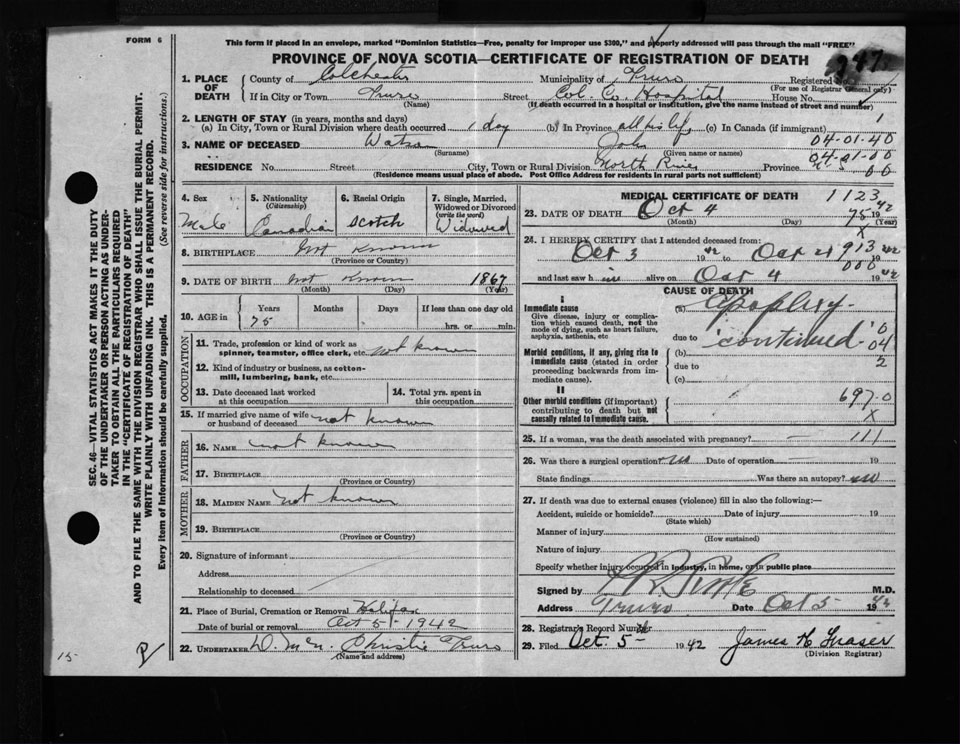 FORM 6
This form if placed in an envelope, marked "Dominion Statistics—Free, penalty for improper use $300," and properly addressed will pass through the mail "FREE"
PROVINCE OF NOVA SCOTIA—CERTIFICATE OF REGISTRATION OF DEATH
947
1. PLACE OF DEATH
County of Colchester Municipality of Truro Registered No.
(For use of Registrar General only)
If in City or Town Truro Street Col. Co. Hospital House No.
(Name) (If death occurred in a hospital or institution, give the name instead of street and number)
2. LENGTH OF STAY (in years, months and days)
(a) In City, Town or Rural Division where death occurred 1 day (b) In Province all his life (c) In Canada (if immigrant) 1
04-01-40
3. NAME OF DECEASED Watson John
(Surname) (Given name or names)
04-01-00
RESIDENCE No. Street City, Town or Rural Division North River Province N. S.
00
(Residence means usual place of abode. Post Office Address for residents in rural parts not sufficient)
4. Sex Male
5. Nationality (Citizenship) Canadian
6. Racial Origin Scotch
7. Single, Married, Widowed or Divorced (write the word) Widowed
8. BIRTHPLACE Not Known
(Province or Country)
9. DATE OF BIRTH Not Known 1867
(Month) (Day) (Year)
10. AGE in Years Months Days If less than one day old
75 hrs. or min.
OCCUPATION
11. Trade, profession or kind of work as spinner, teamster, office clerk, etc. not known
12. Kind of industry or business, as cotton-mill, lumbering, bank, etc.
13. Date deceased last worked at this occupation
14. Total yrs. spent in this occupation
15. If married give name of wife or husband of deceased not known
FATHER
16. NAME not known
17. BIRTHPLACE
(Province or Country)
MOTHER
18. MAIDEN NAME not known
19. BIRTHPLACE
(Province or Country)
20. Signature of informant
Address
Relationship to deceased
21. Place of Burial, Cremation or Removal Halifax
Date of burial or removal Oct 5 1942
22. UNDERTAKER Christie Truro
(Name and address)
MEDICAL CERTIFICATE OF DEATH
1123
23. DATE OF DEATH Oct 4 1942
(Month) (Day) (Year)
75
X
24. I HEREBY CERTIFY that I attended deceased from:
Oct 3 1942 to Oct 4 1942
913
and last saw him alive on Oct 4 1942
000
CAUSE OF DEATH
I
Immediate cause
Give disease, injury or complication which caused death, not the mode of dying, such as heart failure, asphyxia, asthenia, etc
(a) Apoplexy
due to continued
0
04
2
Morbid conditions, if any, giving rise to immediate cause (stated in order proceeding backwards from immediate cause).
(b)
due to
(c)
II
Other morbid conditions (if important) contributing to death but not causally related to immediate cause.
697.0
X
25. If a woman, was the death associated with pregnancy? — 111
26. Was there a surgical operation? no Date of operation — 19
State findings Was there an autopsy? no
27. If death was due to external causes (violence) fill in also the following:—
Accident, suicide or homicide? Date of injury 19
(State which)
Manner of injury
(How sustained)
Nature of injury
Specify whether injury occurred in industry, in home, or in public place
Signed by M.D.
Address Truro Date Oct 5 1942
28. Registrar's Record Number
29. Filed Oct. 5 1942 James H Fraser
(Division Registrar)
SEC. 46—VITAL STATISTICS ACT MAKES IT THE DUTY
OF THE UNDERTAKER OR PERSON ACTING AS UNDER-
TAKER TO OBTAIN ALL THE PARTICULARS REQUIRED
IN THE "CERTIFICATE OF REGISTRATION OF DEATH"
AND TO FILE THE SAME WITH THE DIVISION REGISTRAR WHO SHALL ISSUE THE BURIAL PERMIT.
WRITE PLAINLY WITH UNFADING INK. THIS IS A PERMANENT RECORD.
Every item of Information should be carefully supplied. (See reverse side for instructions.)
15